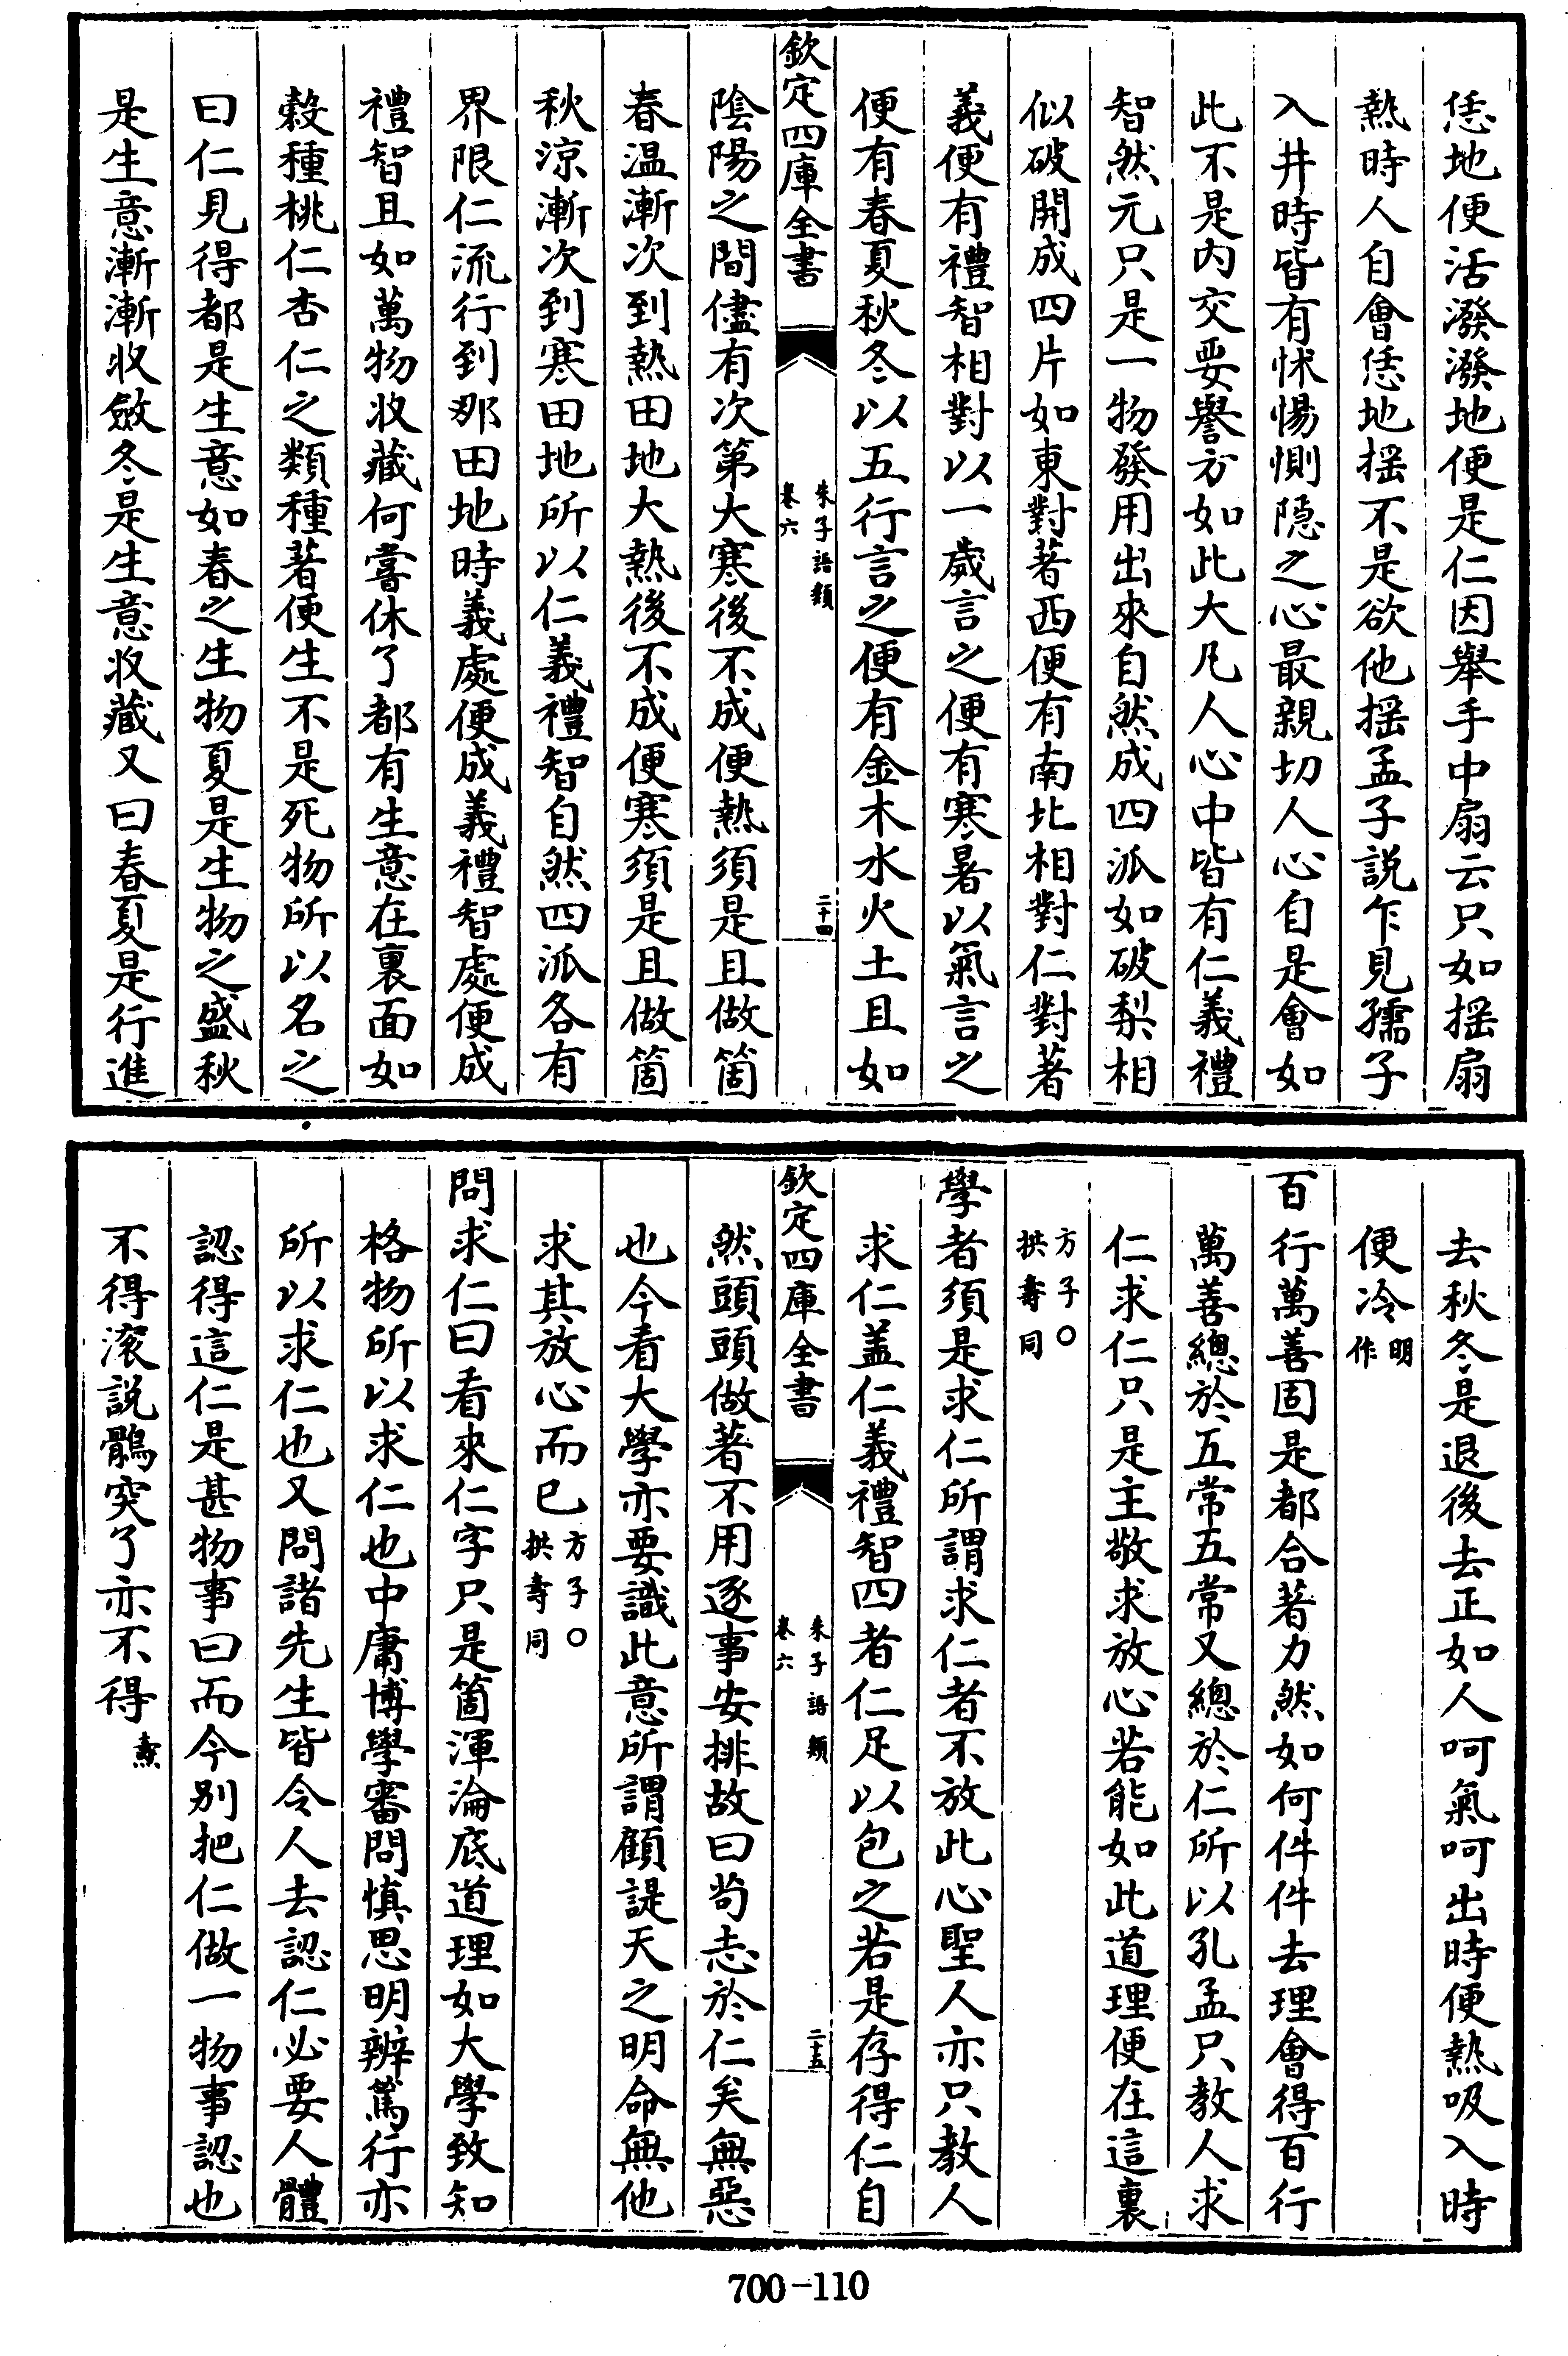 恁地便活潑潑地便是仁因舉手中扇云只如揺扇
熱時人自會恁地揺不是欲他揺孟子説乍見孺子
入井時皆有怵惕惻隠之心最親切人心自是會如
此不是内交要譽方如此大凡人心中皆有仁義禮
智然元只是一物發用出來自然成四派如破梨相
似破開成四片如東對著西便有南北相對仁對著
義便有禮智相對以一歲言之便有寒暑以氣言之
便有春夏秋冬以五行言之便有金木水火土且如
欽定四庫全書
朱子語類
卷六
二十四
陰陽之間儘有次第大寒後不成便熱須是且做箇
春温漸次到熱田地大熱後不成便寒須是且做箇
秋涼漸次到寒田地所以仁義禮智自然四派各有
界限仁流行到那田地時義處便成義禮智處便成
禮智且如萬物收藏何嘗休了都有生意在裏面如
穀種桃仁杏仁之類種著便生不是死物所以名之
曰仁見得都是生意如春之生物夏是生物之盛秋
是生意漸漸收斂冬是生意收藏又曰春夏是行進
去秋冬是退後去正如人呵氣呵出時便熱吸入時
便冷明作
百行萬善固是都合著力然如何件件去理會得百行
萬善總於五常五常又總於仁所以孔孟只教人求
仁求仁只是主敬求放心若能如此道理便在這裏
方子○拱壽同
學者須是求仁所謂求仁者不放此心聖人亦只教人
求仁盖仁義禮智四者仁足以包之若是存得仁自
欽定四庫全書
朱子語類
卷六
二十五
然頭頭做著不用逐事安排故曰茍志於仁矣無惡
也今看大學亦要識此意所謂顧諟天之明命無他
求其放心而已方子○拱壽同
問求仁曰看來仁字只是箇渾淪底道理如大學致知
格物所以求仁也中庸博學審問慎思明辨篤行亦
所以求仁也又問諸先生皆令人去認仁必要人體
認得這仁是甚物事曰而今别把仁做一物事認也
不得滚説鶻突了亦不得燾
700-110